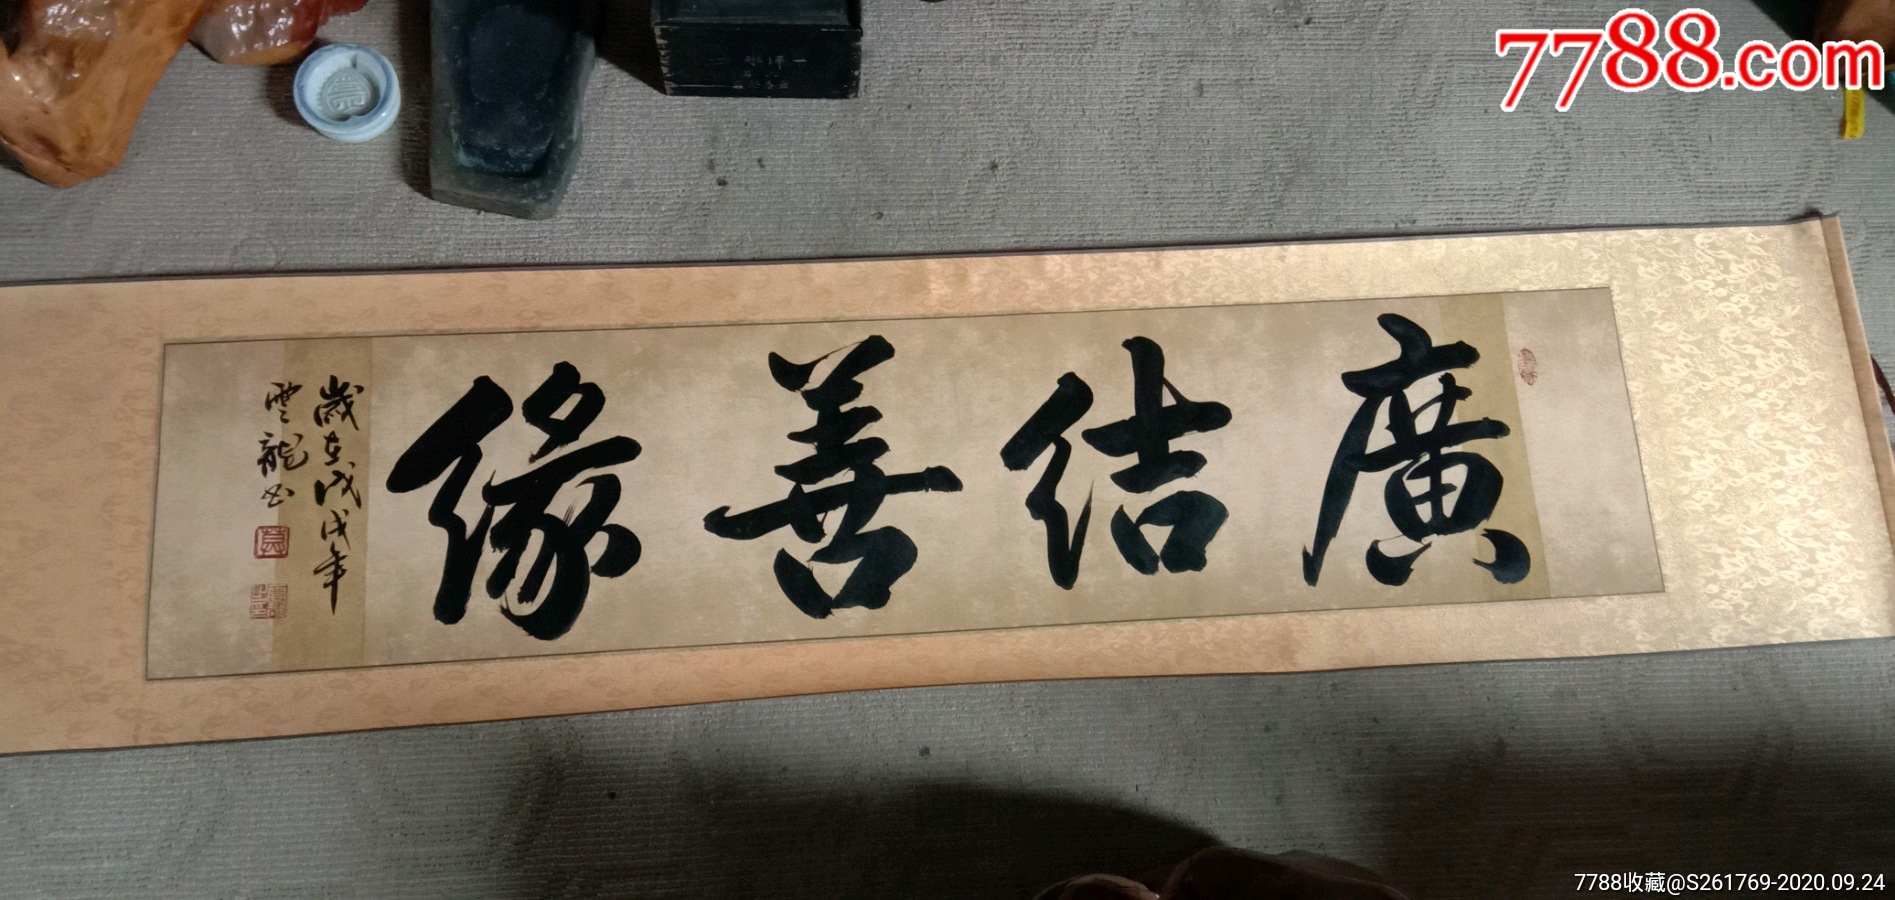 7788.com
廣結善緣
歲在戊戌年
雲龍書
7788收藏@S261769-2020.09.24